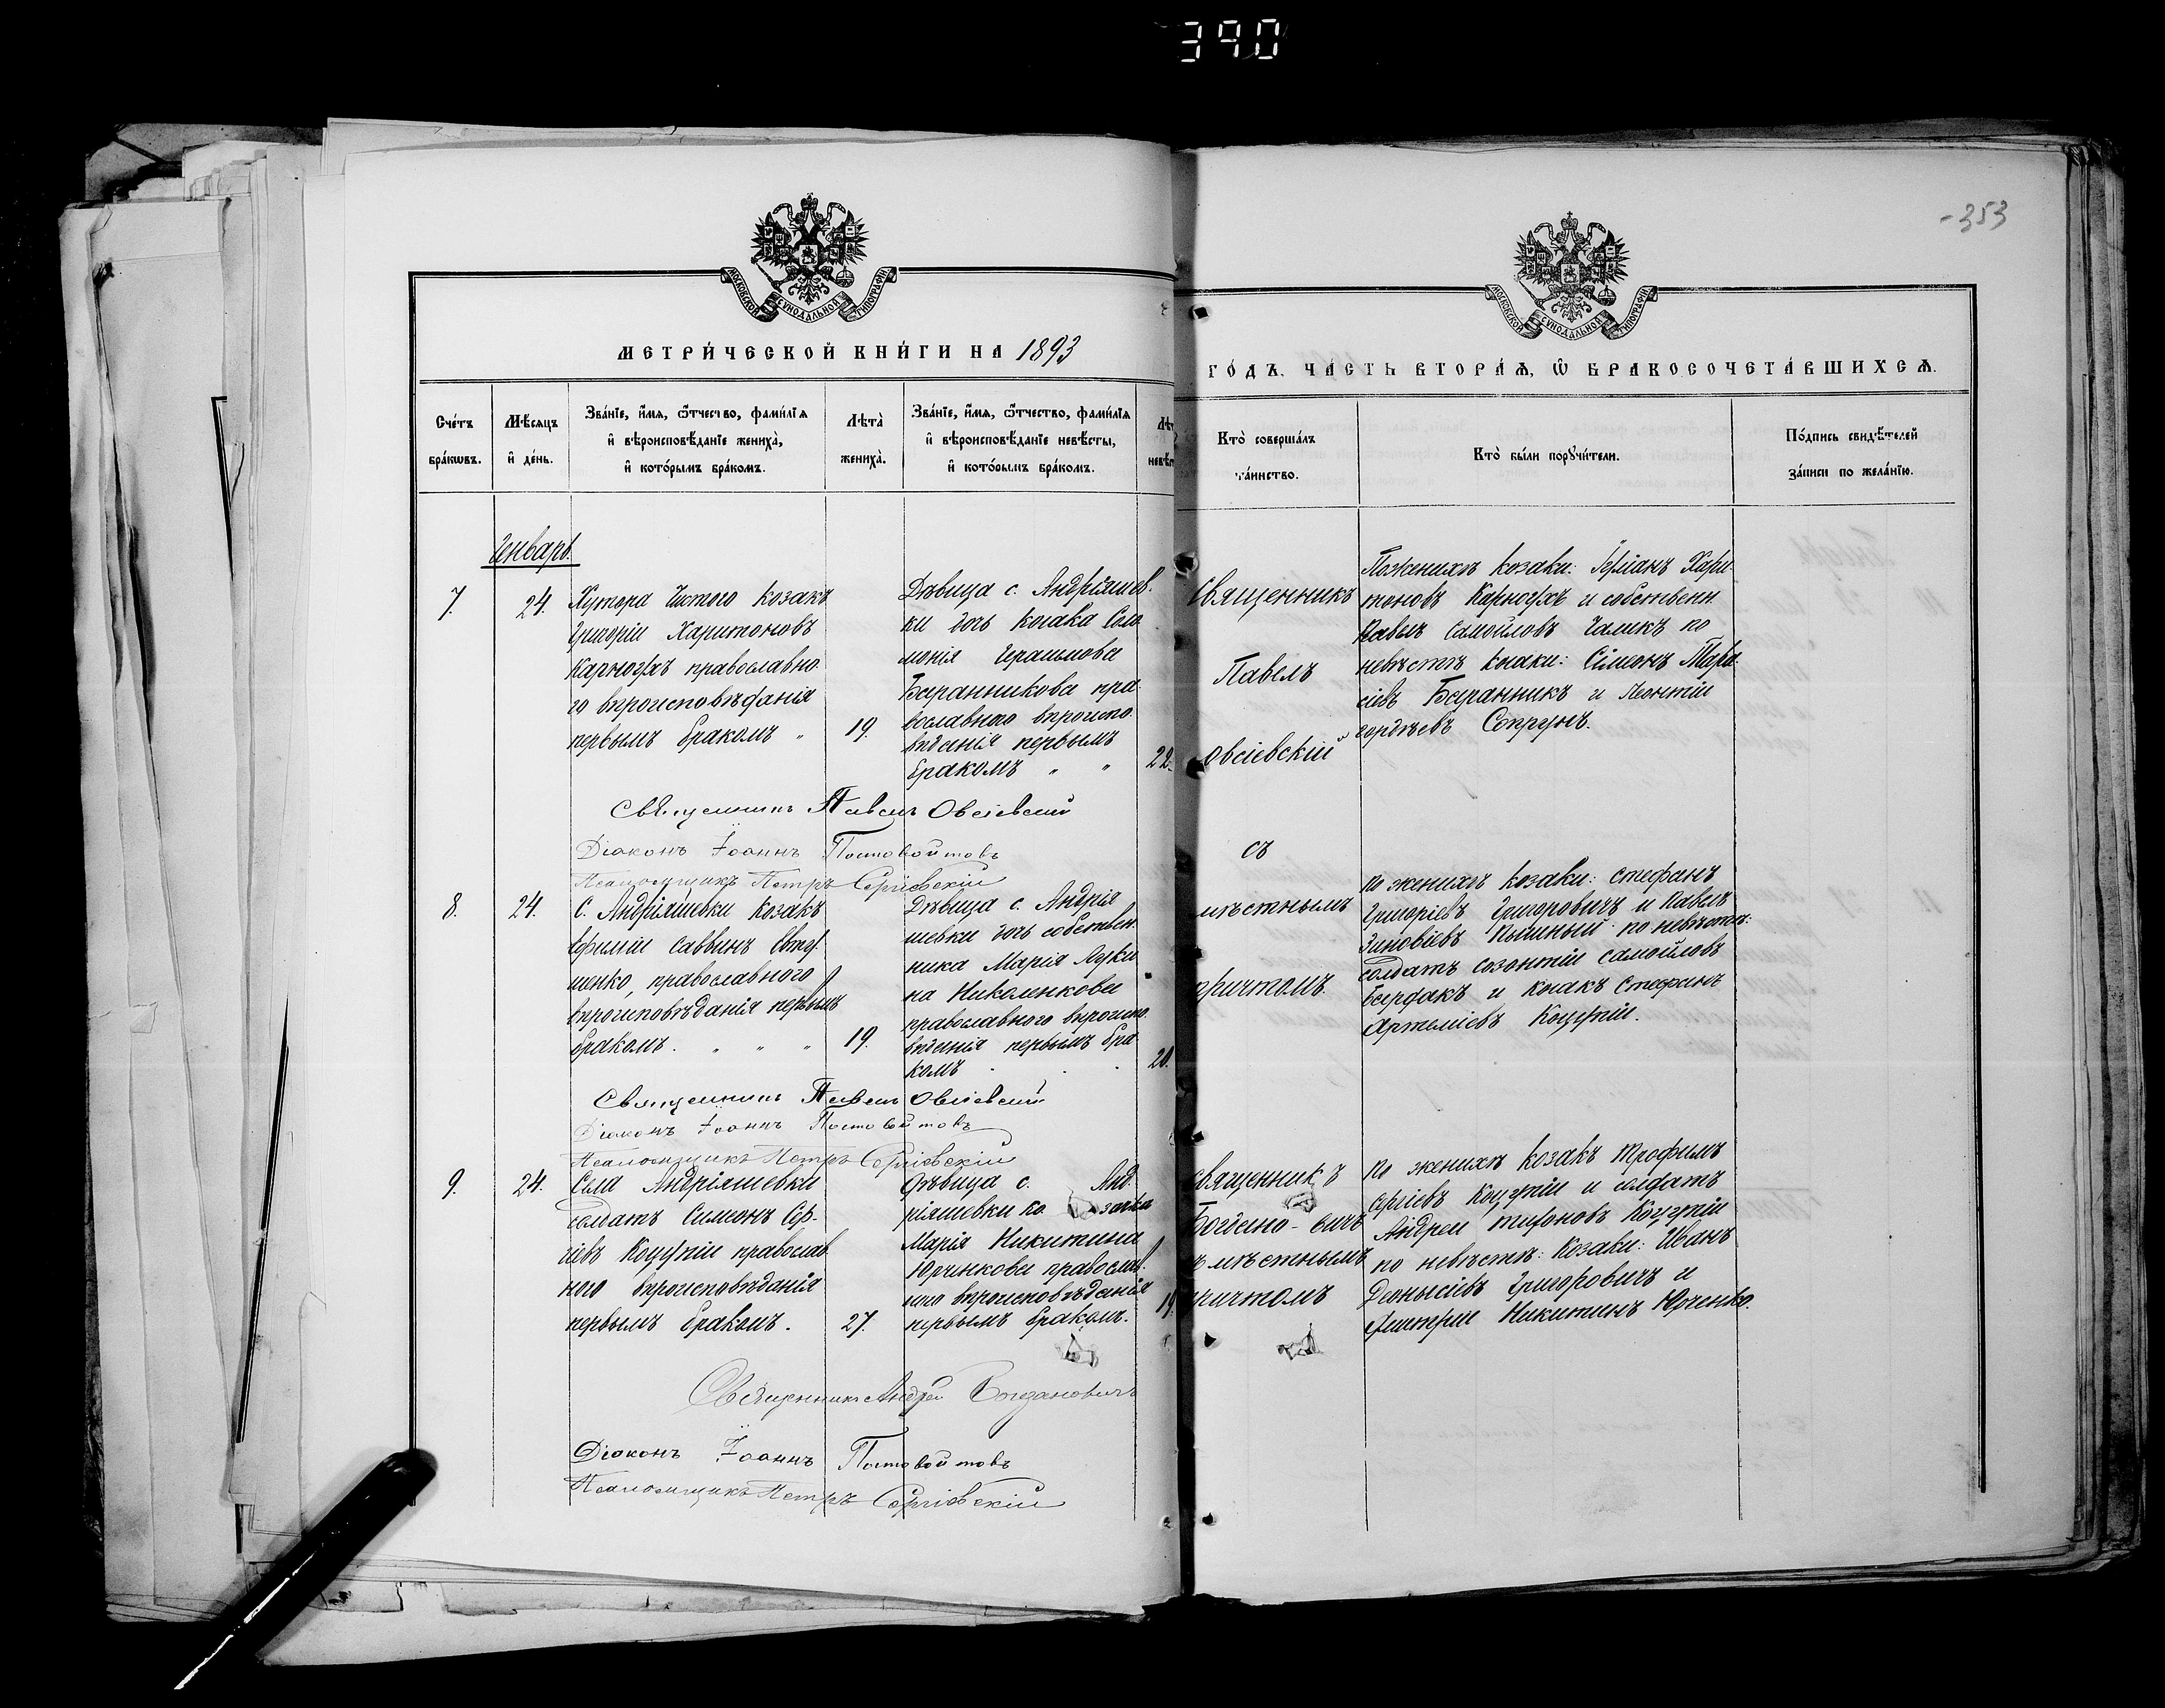 390
-353
МОСКОВСКОЙ СѴНОДАЛЬНОЙ ТИПОГРАФІИ
МЕТРИ́ЧЕСКОЙ КНИ́ГИ НА 1893
МОСКОВСКОЙ СѴНОДАЛЬНОЙ ТИПОГРАФІИ
ГО́ДЪ, ЧА́СТЬ ВТОРА́Ѧ, Ѿ БРАКОСОЧЕТА́ВШИХСѦ.
Сче́тъ
бра́кωвъ.
Мѣ́сѧцъ
и҆ де́нь.
Зва́нїе, и҆́мѧ, ѻ҆́тчество, фами́лїѧ
и҆ вѣроисповѣ́данїе жениха̀,
и҆ кото́рымъ бра́комъ.
Лѣта̀
жениха̀.
Зва́нїе, и҆́мѧ, ѻ҆́тчество, фами́лїѧ
и҆ вѣроисповѣ́данїе невѣ́сты,
и҆ кото́рымъ бра́комъ.
Кто̀ соверша́лъ
та́инство.
Кто̀ бы́ли порꙋчи́тели.
По́дпись свидѣ́телей
за́писи по жела́нїю.
Генварь.
7.
24.
Хутора Чистого козакъ
Григорій Харитоновъ
Карнаухъ православно
го вѣроисповѣданія
первымъ бракомъ „
19.
Дѣвица с. Андріяшев.
ки дочь козака Соло
монія Гераимова
Баранникова пра
вославного вѣроиспо
вѣданія первымъ
бракомъ „ „
22.
Священникъ
Павелъ
Овсіевскій
съ
мѣстнымъ
причтомъ.
По женихѣ козаки: Хари
тоновъ Карнаухъ и собственн.
Павелъ Самойловъ по
невѣстѣ козаки: Сімеонъ Тара
сіевъ Баранникъ и Леонтій
Гордѣевъ Сопрунъ.
Священникъ Павелъ Овсіевскій
Діаконъ Іоаннъ Постовойтовъ
Псаломщикъ Петръ Сергіевскій
8.
24.
С. Андріяшевки козакъ
Ефимій Саввинъ Евту
шенко, православного
вѣроисповѣданія первымъ
бракомъ. „ „ „
19.
Дѣвица с. Андрія
шевки дочь собствен.
ника Марія Луки
на Николенкова
православного вѣроиспо.
вѣданія первымъ бра
комъ
20.
По женихѣ козаки: Стефанъ
Григоріевъ Григоровичъ и Павелъ
Зиновіевъ Пышный по невѣстѣ:
солдатъ Созонтій Самойловъ
Бардакъ и козакъ Стефанъ
Артеміевъ Коцупій.
Священникъ Павелъ Овсіевскій
Діаконъ Іоаннъ Постовойтовъ
Псаломщикъ Петръ Сергіевскій
9.
24.
Села Андріяшевки
солдатъ Симеонъ Сер-
гіевъ Коцупій православ
ного вѣроисповѣданія
первымъ бракомъ.
27.
Дѣвица с. Анд
ріяшевки ко зачка
Марія Никитина
Юрченкова православ.
ного вѣроисповѣданія
первымъ бракомъ.
19.
Священникъ
Богдано-вичъ
съ мѣстнымъ
причтомъ
По женихѣ козакъ Трофимъ
Сергіевъ Коцупій и солдатъ
Андрей Тихоновъ Коцупій
по невѣстѣ: козаки: Иванъ
Діонысіевъ Григоровичъ и
Димитрій Никитинъ Юрченко.
Священникъ Андрей Богдановичъ
Діаконъ Іоаннъ Постовойтовъ
Псаломщикъ Петръ Сергіевскій